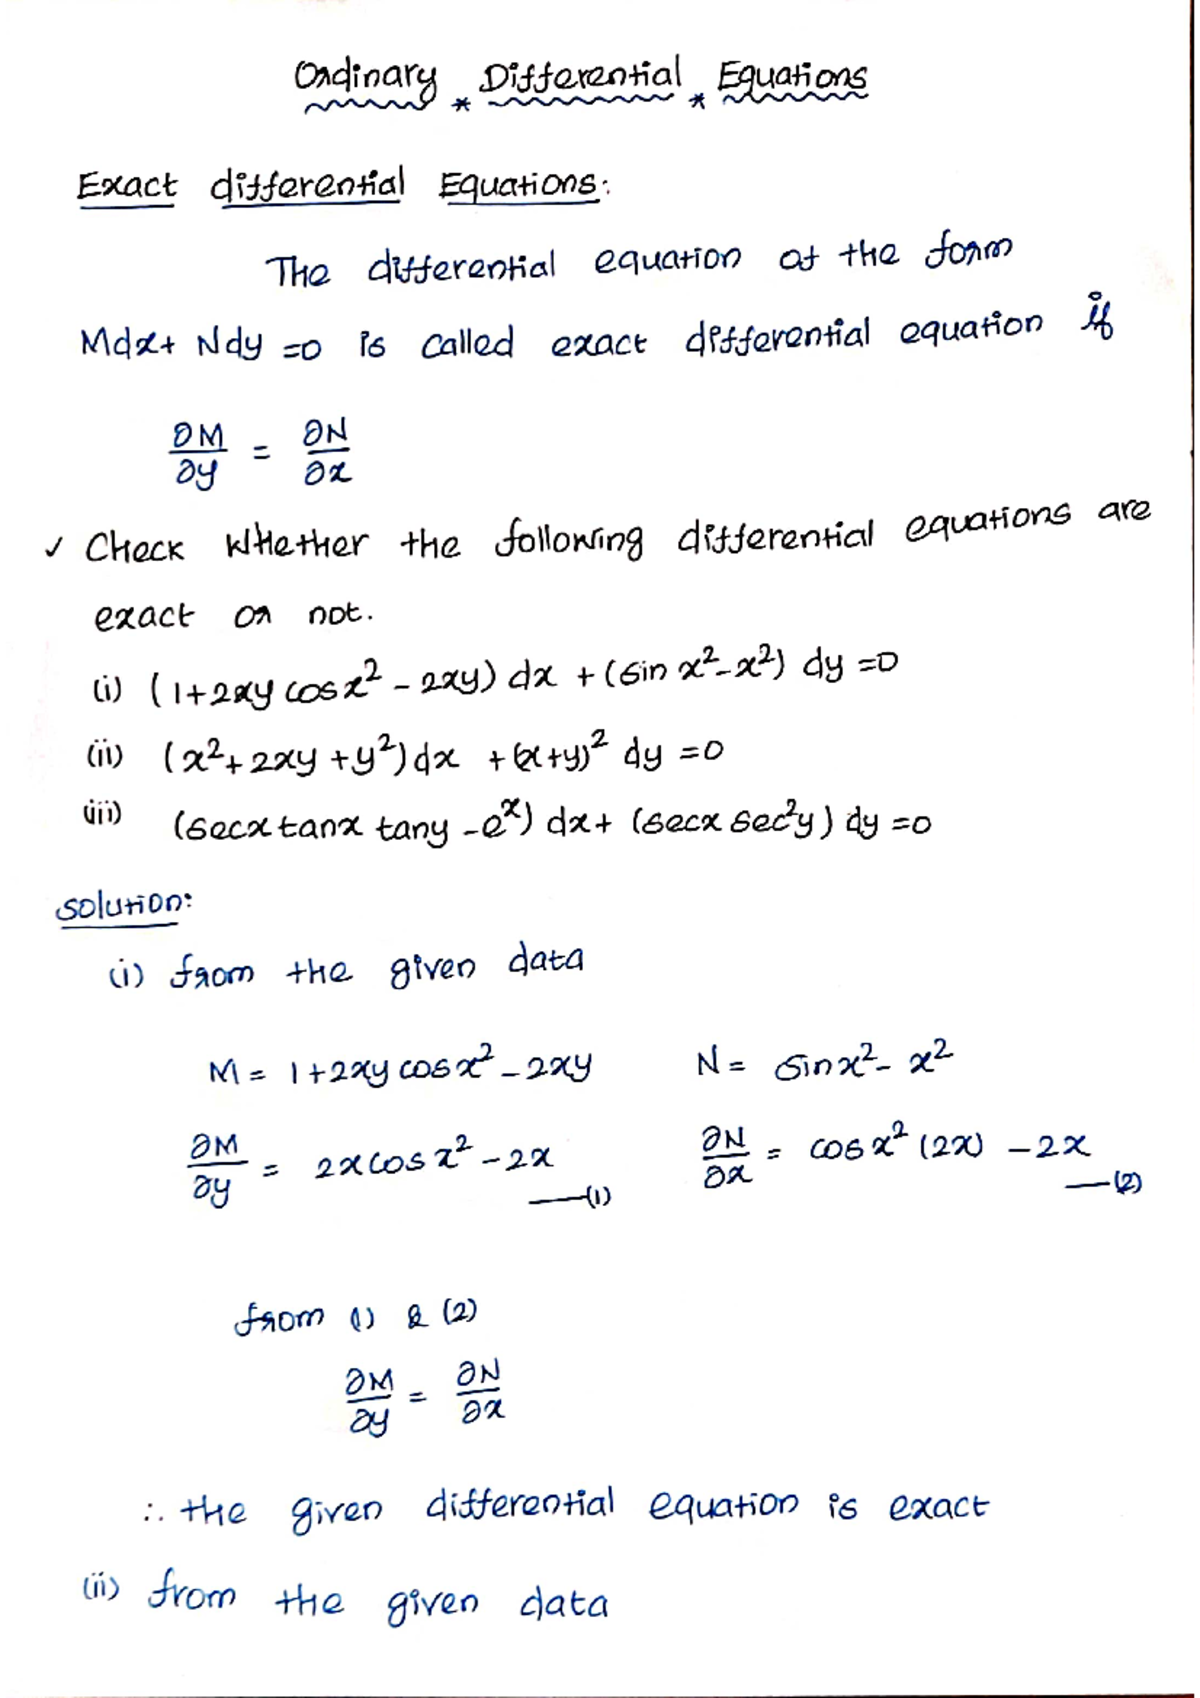 Ordinary * Differential * Equations
Exact differential Equations:
The differential equation of the form
Mdx+ Ndy =0 is called exact differential equation if
∂M/∂y = ∂N/∂x
✓ Check Whether the following differential equations are
exact or not.
(i) (1+2xy cosx² - 2xy) dx + (sin x² - x²) dy =0
(ii) (x²+ 2xy +y²)dx + (x+y)² dy =0
(iii) (secx tanx tany - eˣ) dx+ (secx sec²y) dy =0
solution:
(i) from the given data
M = 1+2xy cosx² - 2xy N = sinx² - x²
∂M/∂y = 2x cos x² - 2x —(1) ∂N/∂x = cos x² (2x) - 2x —(2)
from (1) & (2)
∂M/∂y = ∂N/∂x
∴ the given differential equation is exact
(ii) from the given data